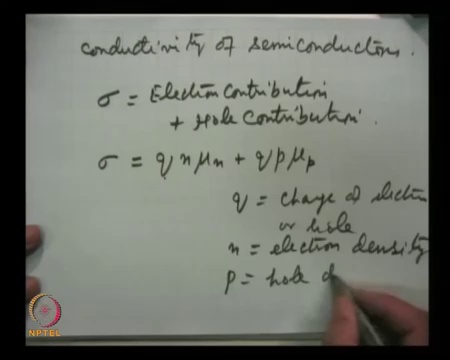 conductivity of semiconductors.
σ = Electron contribution
+ Hole contribution.
σ = q n μn + q p μp
q = charge of electron
or hole
n = electron density
p = hole d
NPTEL